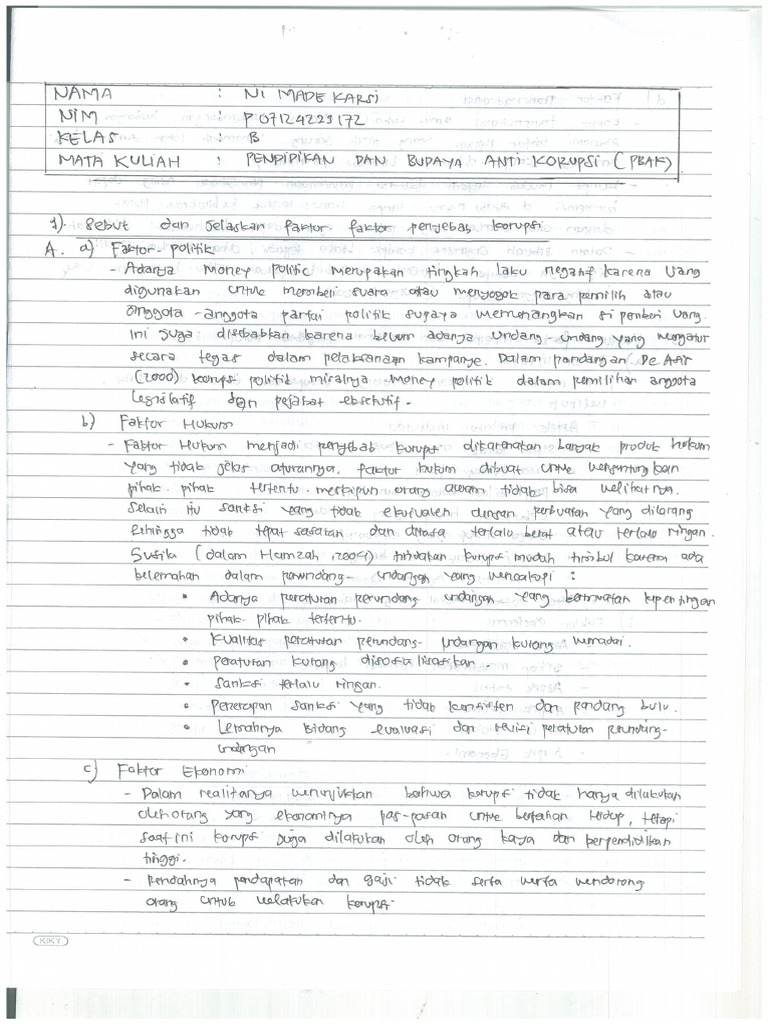 NAMA : NI MADE KARSI
NIM : P07124223172
KELAS : B
MATA KULIAH : PENDIDIKAN DAN BUDAYA ANTI KORUPSI (PBAK)
1). Sebut dan jelaskan faktor faktor penyebab korupsi
A. a) Faktor politik
- Adanya money politic merupakan tingkah laku negatif karena uang
digunakan untuk membeli suara atau menyogok para pemilih atau
anggota - anggota partai politik supaya memenangkan si pemberi uang.
Ini juga disebabkan karena belum adanya undang - undang yang mengatur
secara tegas dalam pelaksanaan kampanye. Dalam pandangan De Asis
(2000) korupsi politik misalnya money politik dalam pemilihan anggota
legislatif dan pejabat eksekutif.
b) Faktor Hukum
- Faktor Hukum menjadi penyebab korupsi dikarenakan banyak produk hukum
yang tidak jelas aturannya, faktor hukum dibuat untuk menguntungkan
pihak - pihak tertentu meskipun orang awam tidak bisa melihatnya.
Selain itu sanksi yang tidak ekuivalen dengan perbuatan yang dilarang
sehingga tidak tepat sasaran dan dirasa terlalu berat atau terlalu ringan.
Susila (dalam Hamzah, 2004) tindakan korupsi mudah timbul karena ada
kelemahan dalam perundang - undangan yang mencakupi :
• Adanya peraturan perundang undangan yang bermuatan kepentingan
pihak - pihak tertentu.
• Kualitas peraturan perundang - undangan kurang memadai.
• Peraturan kurang disosialisasikan.
• Sanksi terlalu ringan.
• Penerapan sanksi yang tidak konsisten dan pandang bulu.
• Lemahnya bidang evaluasi dan revisi peraturan perundang-
undangan
c) Faktor Ekonomi
- Dalam realitanya menunjukkan bahwa korupsi tidak hanya dilakukan
oleh orang yang ekonominya pas-pasan untuk bertahan hidup, tetapi
saat ini korupsi juga dilakukan oleh orang kaya dan berpendidikan
tinggi.
- Rendahnya pendapatan dan gaji tidak serta merta mendorong
orang untuk melakukan korupsi.
KIKY